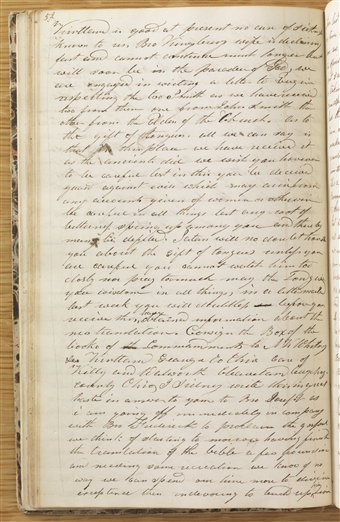 52
Kirtland is good at present no case of sickness
known to us Bro Kingsberry wife is declining
fast and cannot continue much longer but
will soon be in the paradise of God, we
are engaged in writing a letter to
respecting the as we have received
two from there one from John Smith the
other from the Elders of the Church. As to
the gift of tongues, all we can say is
that in this place we have receive it
as the ancients did we wish you however
to be careful lest in this you be deceived
guard against evils which may
any accounts given of women or otherwise
be careful in all things lest any root of
bitterness spring up among you and thereby
many be defiled. Satan will no doubt trouble
you about the gift of tongues unless you
are careful you cannot watch him to
closely nor pray to much may the Lord give
you wisdom in all things in a letter mailed
last week you will doubtless before you
receive this have obtained information about the
new translation. Consign the Box of the
books of Commandments to N K Whitney
Kirtland Geauga Co Ohio Care of
Kelly and Walworth Cleaveland Cuyahoga
county Ohio, I Sidney write this in great
haste in answer to yours to Bro Joseph as
i am going off immediately in company
with Bro Frederick to proclaim the gospel
we think of starting to morrow having finished
the translation of the bible a few hours since
and needing some recreation we know of no
way we can spend our time more to divine
acceptance than endevoring to build up his